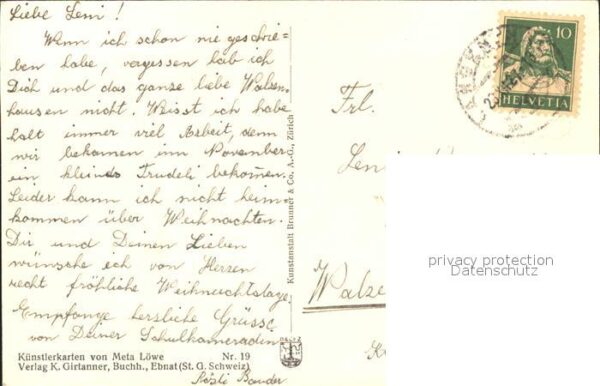 Liebe Leni!
Wenn ich schon nie geschrie=
ben habe, vergessen hab ich
Dich und das ganze liebe Walzen=
hausen nicht. Weisst ich habe
halt immer viel Arbeit, denn
wir bekamen im November
ein kleines Trudeli bekommen.
Leider kann ich nicht heim=
kommen über Weihnachten.
Dir und Deinen Lieben
wünsche ich von Herzen
recht fröhliche Weihnachtstage.
Empfange herzliche Grüsse
von Deiner Schulkameradin
Rösli Bander
Künstlerkarten von Meta Löwe Nr. 19
Verlag K. Girtanner, Buchh., Ebnat (St. G. Schweiz)
Kunstanstalt Brunner & Co. A.-G., Zürich
10
HELVETIA
Frl.
Len
Walze
privacy protection
Datenschutz